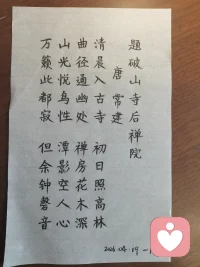 题破山寺后禅院
唐 常建
清晨入古寺 初日照高林
曲径通幽处 禅房花木深
山光悦鸟性 潭影空人心
万籁此都寂 但余钟磬音